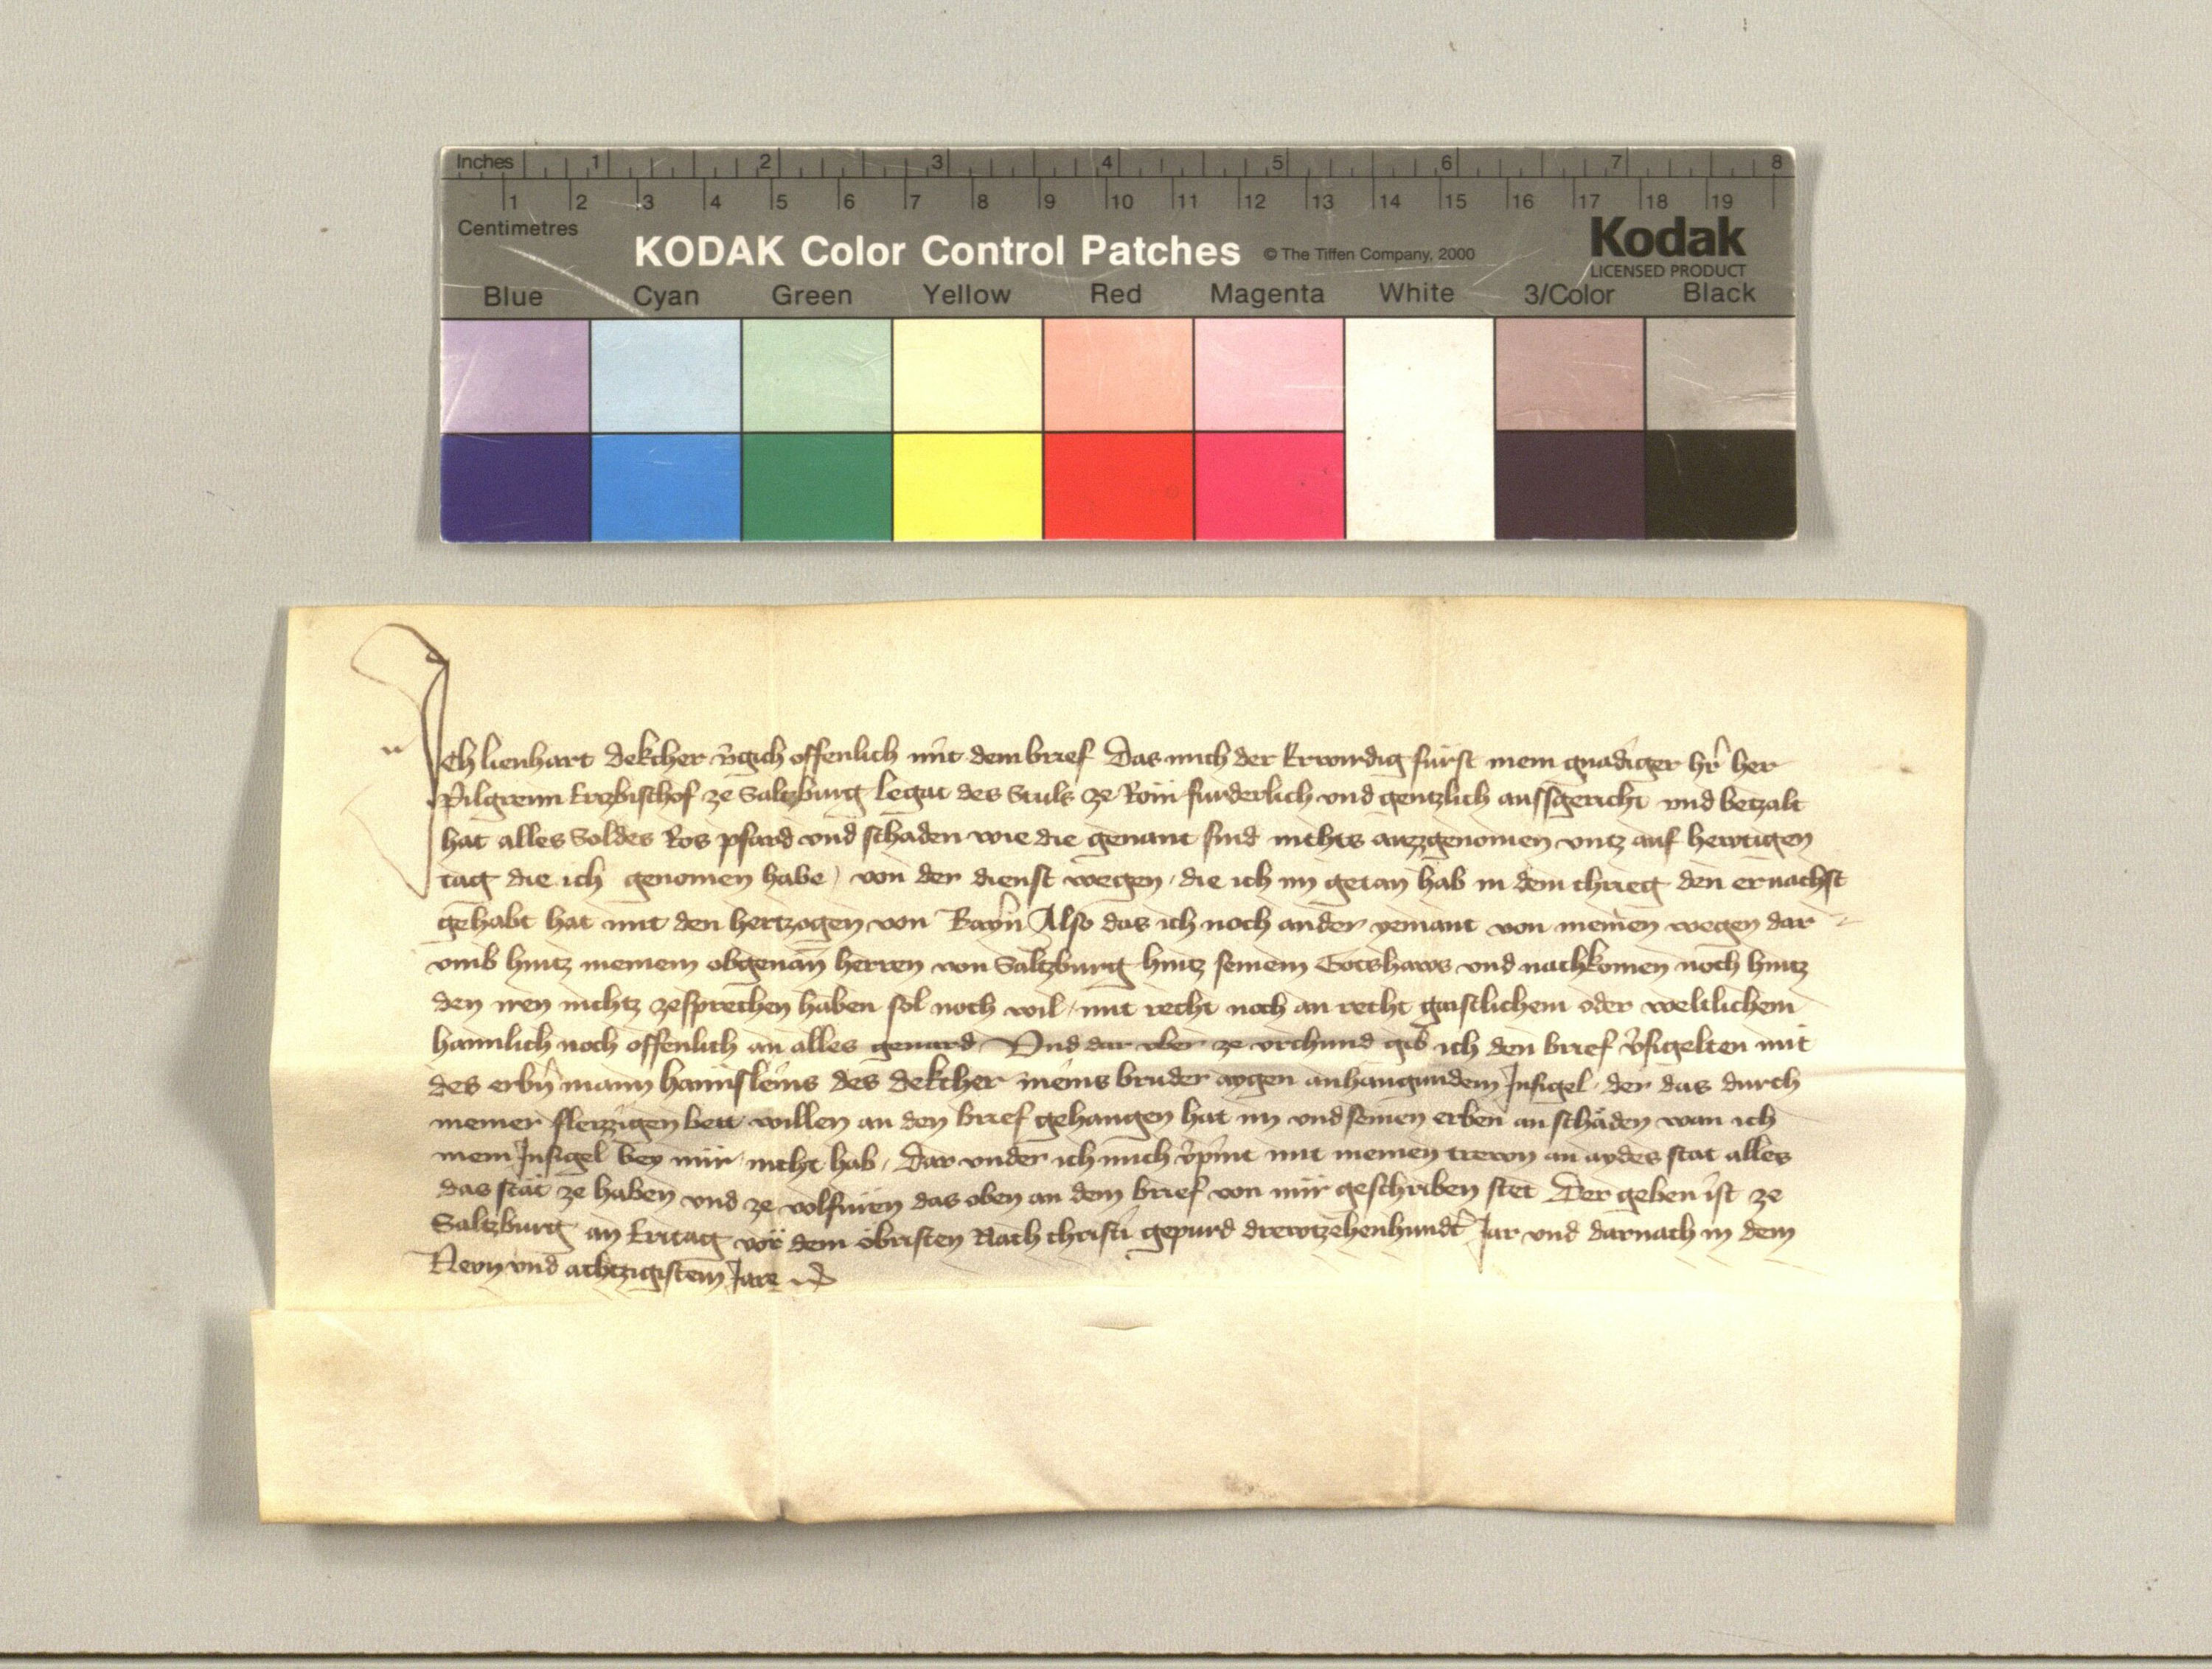 Inches 1 2 3 4 5 6 7 8
1 2 3 4 5 6 7 8 9 10 11 12 13 14 15 16 17 18 19
Centimetres
KODAK Color Control Patches © The Tiffen Company, 2000 Kodak
LICENSED PRODUCT
Blue Cyan Green Yellow Red Magenta White 3/Color Black
Ich lienhart dekcher v̄gich offenlich mit dem brief Das mich der Erwirdig fürst mein gnädiger hr̄ her
Pilgreim Erczbischof ze Saltzburg legat des Stuls ze Rom furderlich vnd gentzlich aussgericht vnd betzalt
hat alles Soldes Ros pfard vnd schaden wie die genant sind nichts auzzgenomen vntz auf hewtigen
tag die ich genomen habe von der dienst wegen die ich im getan hab in dem chrieg den er nachst
gehabt hat mit den hertzogen von Bayrn Also das ich noch ander yemant von meinen wegen dar
vmb hintz meinem obgenan̄ herren von Saltzburg hintz seinem Gotshaws vnd nachkomen noch hintz
den iren nichtz ze sprechen haben sol noch wil mit recht noch an recht gaistlichem oder weltlichem
haimlich noch offenlich an alles geuard Vnd dar vber ze vrchund gib ich den brief v̄sigelten mit
des erbn̄ mann hannsleins des dekcher meins bruder aygen anhangundem Insigel der das durch
meiner fleizzigen bett willen an den brief gehangen hat im vnd seinen erben an schäden wan ich
mein Insigel bey mir nicht hab Dar vnder ich mich v̄pint mit meinen trewn an aydes stat alles
das stät ze haben vnd ze volfüren das oben an dem brief von mir geschriben stet Der geben ist ze
Saltzburg an Eritag vor dem öbristen Nach christi gepurd drewtzehenhundt̄ Jar vnd darnach in dem
Newn vnd achtzigistem Jare